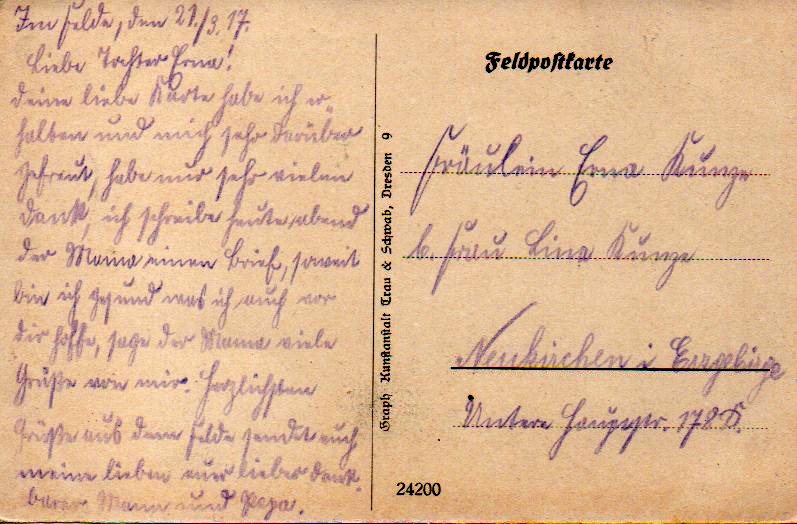 Im Felde, den 21./3.17.
Liebe Tochter Erna!
Deine liebe Karte habe ich er-
halten und mich sehr darüber
gefreut, habe nur sehr vielen
Dank, ich schreibe heute abend
der Mama einen Brief, soweit
bin ich gesund was ich auch vor
dir hoffe, sage der Mama viele
Grüße von mir. Herzlichsten
Grüße aus dem Felde sendet euch
meine lieben euer lieber dank-
barer Mann und Papa.
Feldpostkarte
Fräulein Erna Kunze
b. Frau Lina Kunze
Neukirchen i Erzgebirge
Untere Hauptstr. 178
Graph. Kunstanstalt Trau & Schwab, Dresden 9
24200